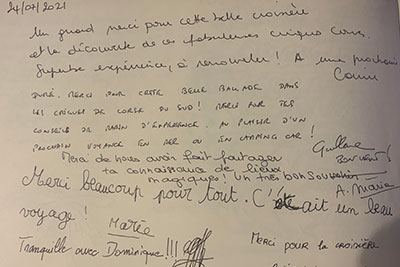 24/07/2021
Un grand merci pour cette belle croisière
et la découverte de ces fabuleuses criques Corses
Superbe expérience, à renouveler ! A une prochaine
MERCI POUR CETTE BELLE BALLADE DANS
LES CRIQUES DE CORSE DU SUD ! MERCI POUR TES
CONSEILS DE MARIN D'EXPÉRIENCE. AU PLAISIR D'UN
PROCHAIN VOYAGE EN MER OU EN CAMPING CAR !
Merci de nous avoir fait partager
ta connaissance de lieux
magiques ! Un très bon souvenir
A. Marie
Merci beaucoup pour tout. C'était un beau
voyage !
Tranquille avec Dominique !!!
Merci pour la croisière